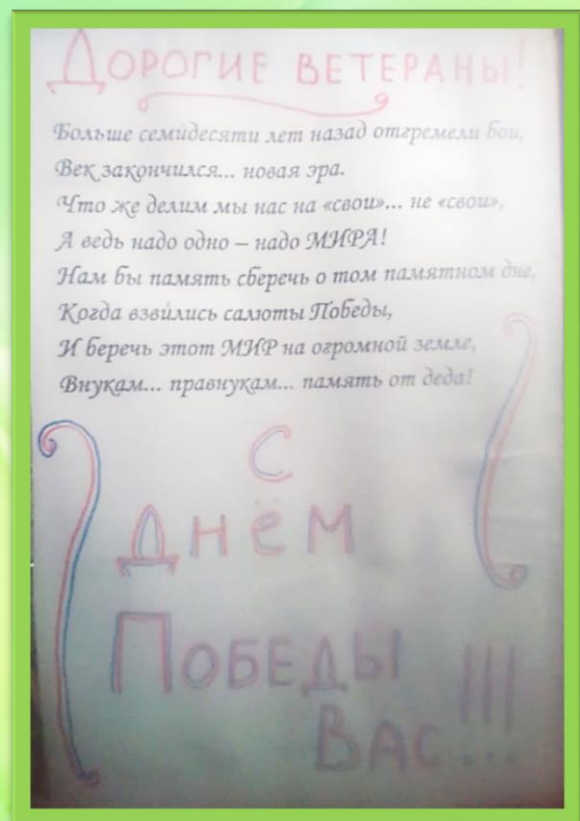 Дорогие ветераны!
Больше семидесяти лет назад отгремели бои,
Век закончился... новая эра.
Что же делим мы нас на «свои»... не «свои»,
А ведь надо одно – надо МИРА!
Нам бы память сберечь о том памятном дне,
Когда взвились салюты Победы,
И беречь этот МИР на огромной земле,
Внукам... правнукам... память от деда!
С
Днём
Победы
Вас !!!